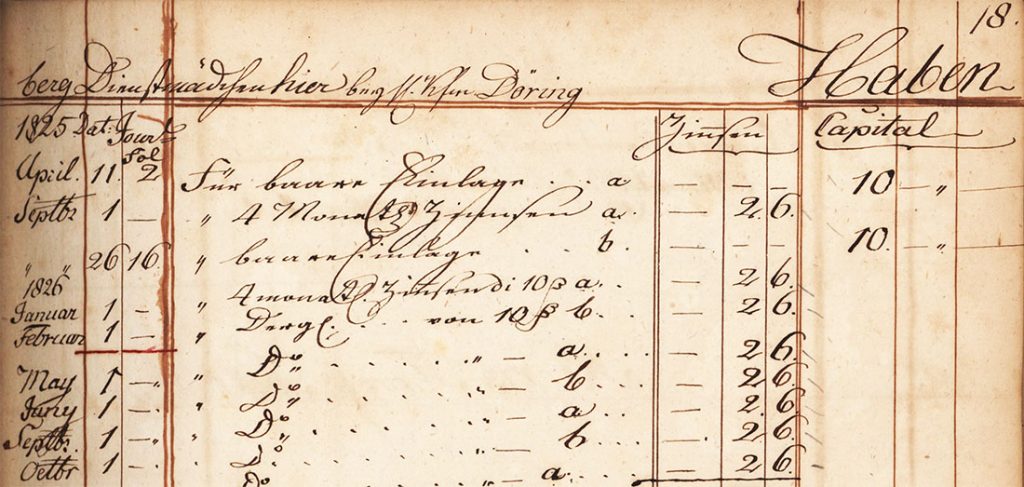 18.
Haben
berg Dienstmädchen hier Döring
1825 Dat: Jour Fol Zinsen Capital
April. 11. 2 Für baare Einlage . . a — — — 10 — "
Septbr 1 — " 4 Monat Zinnsen a. — 2 6.
" " 26 16 " baare Einlage . b. — — — 10. — "
1826 " 4 monat Zinsen di 10 a. . — 2 6.
Januar 1 — " Dergl. . . . von 10 b. . — 2 6.
Februar 1 — " Do . . . . " — a. . . — 2 6.
May 1 — " Do . . . . " — b. . . — 2 6.
Juny 1 — " Do . . . . " — a . . — 2. 6.
Septbr. 1 — " Do . . . . " — b. . . — 2 6.
Octbr 1 — Do . . . . a . . — 2 6.